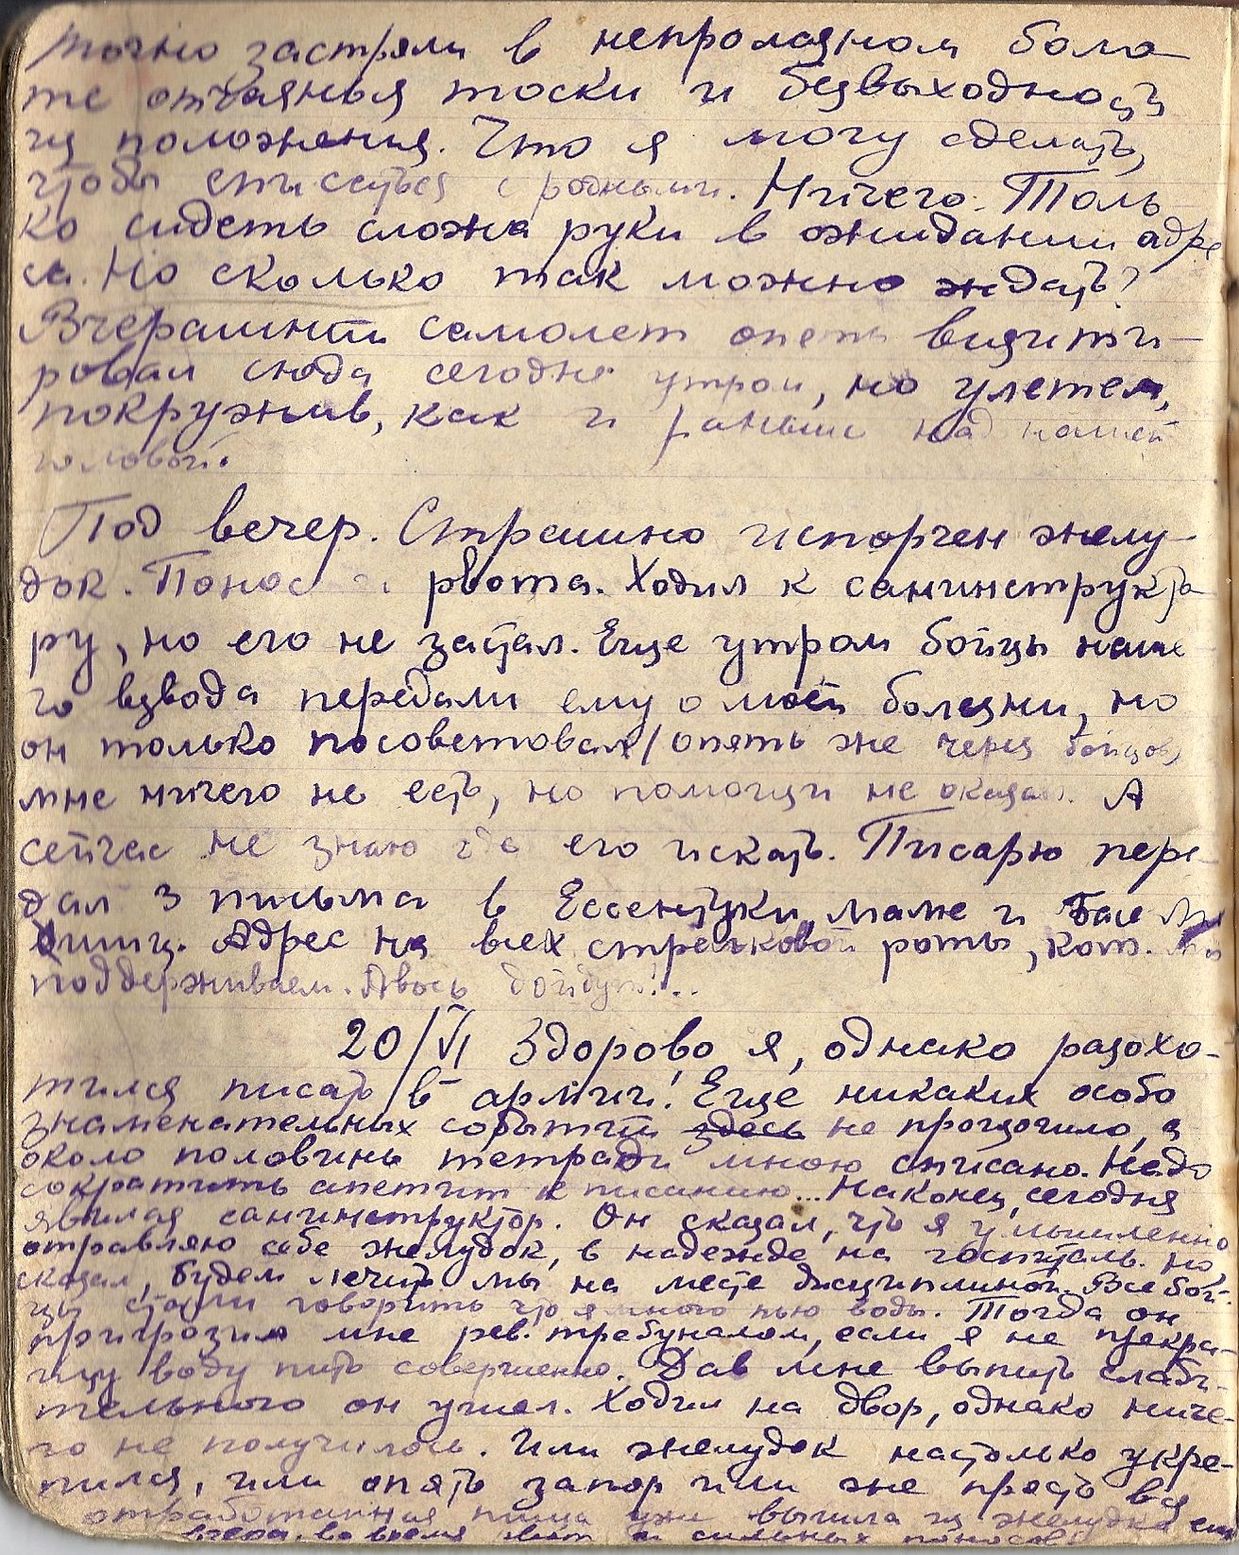 точно застряли в непролазном боло-
те отчаянья тоски и безвыходнос
ти положения. Что я могу сделать,
чтобы списаться с родными. Ничего. Толь-
ко сидеть сложа руки в ожидании адре
са. Но сколько так можно ждать?
Вчерашний самолет опять визити-
ровал сюда сегодня утром, но улетел,
покружив, как и раньше над нашей
головой.
Под вечер. Страшно испорчен желу-
док. Понос и рвота. Ходил к санинструкто
ру, но его не застал. Еще утром бойцы наше
го взвода передали ему о моей болезни, но
он только посоветовал (опять же через бойцов)
мне ничего не есть, но помощи не оказал. А
сейчас не знаю где его искать. Писарю пере-
дал 3 письма в Ессентуки, маме и Бае
Адрес на всех стрелковой роты, кот. мы
поддерживаем. Авось дойдут!..
20/VI Здорово я, однако разохо-
тился писать в армии! Еще никаких особо
знаменательных событий здесь не произошло, а
около половины тетради мною списано. Надо
сократить апетит к писанию... Наконец, сегодня
явился санинструктор. Он сказал, что я умышленно
отравляю себе желудок, в надежде на госпиталь. Но,
сказал, будем лечить мы на месте дисциплиной. Все бой-
цы стали говорить что я много пью воды. Тогда он
пригрозил мне рев. трибуналом, если я не прекра-
щу воду пить совершенно. Дав мне выпить слаби-
тельного он ушел. Ходил на двор, однако ниче-
го не получилось. Или желудок настолько укре-
пился, или опять запор или же просто вся
отработанная пища уже вышла из желудка еще
вчера, во время и сильных поносов.